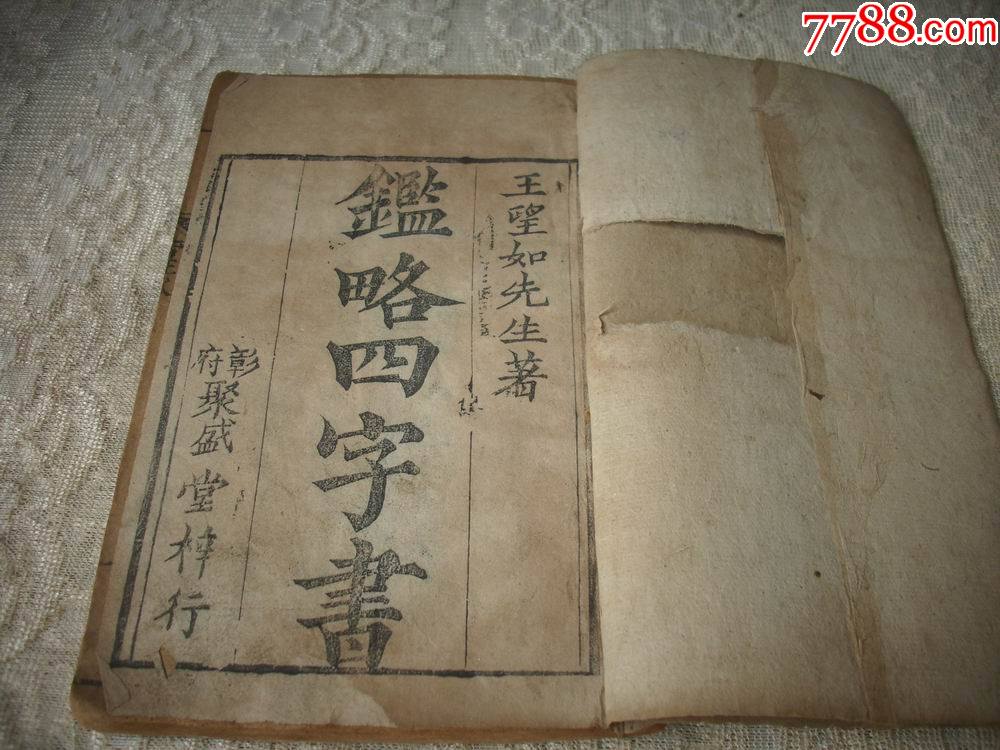 7788.com
王望如先生著
鑑略四字書
彰府
聚盛堂梓行